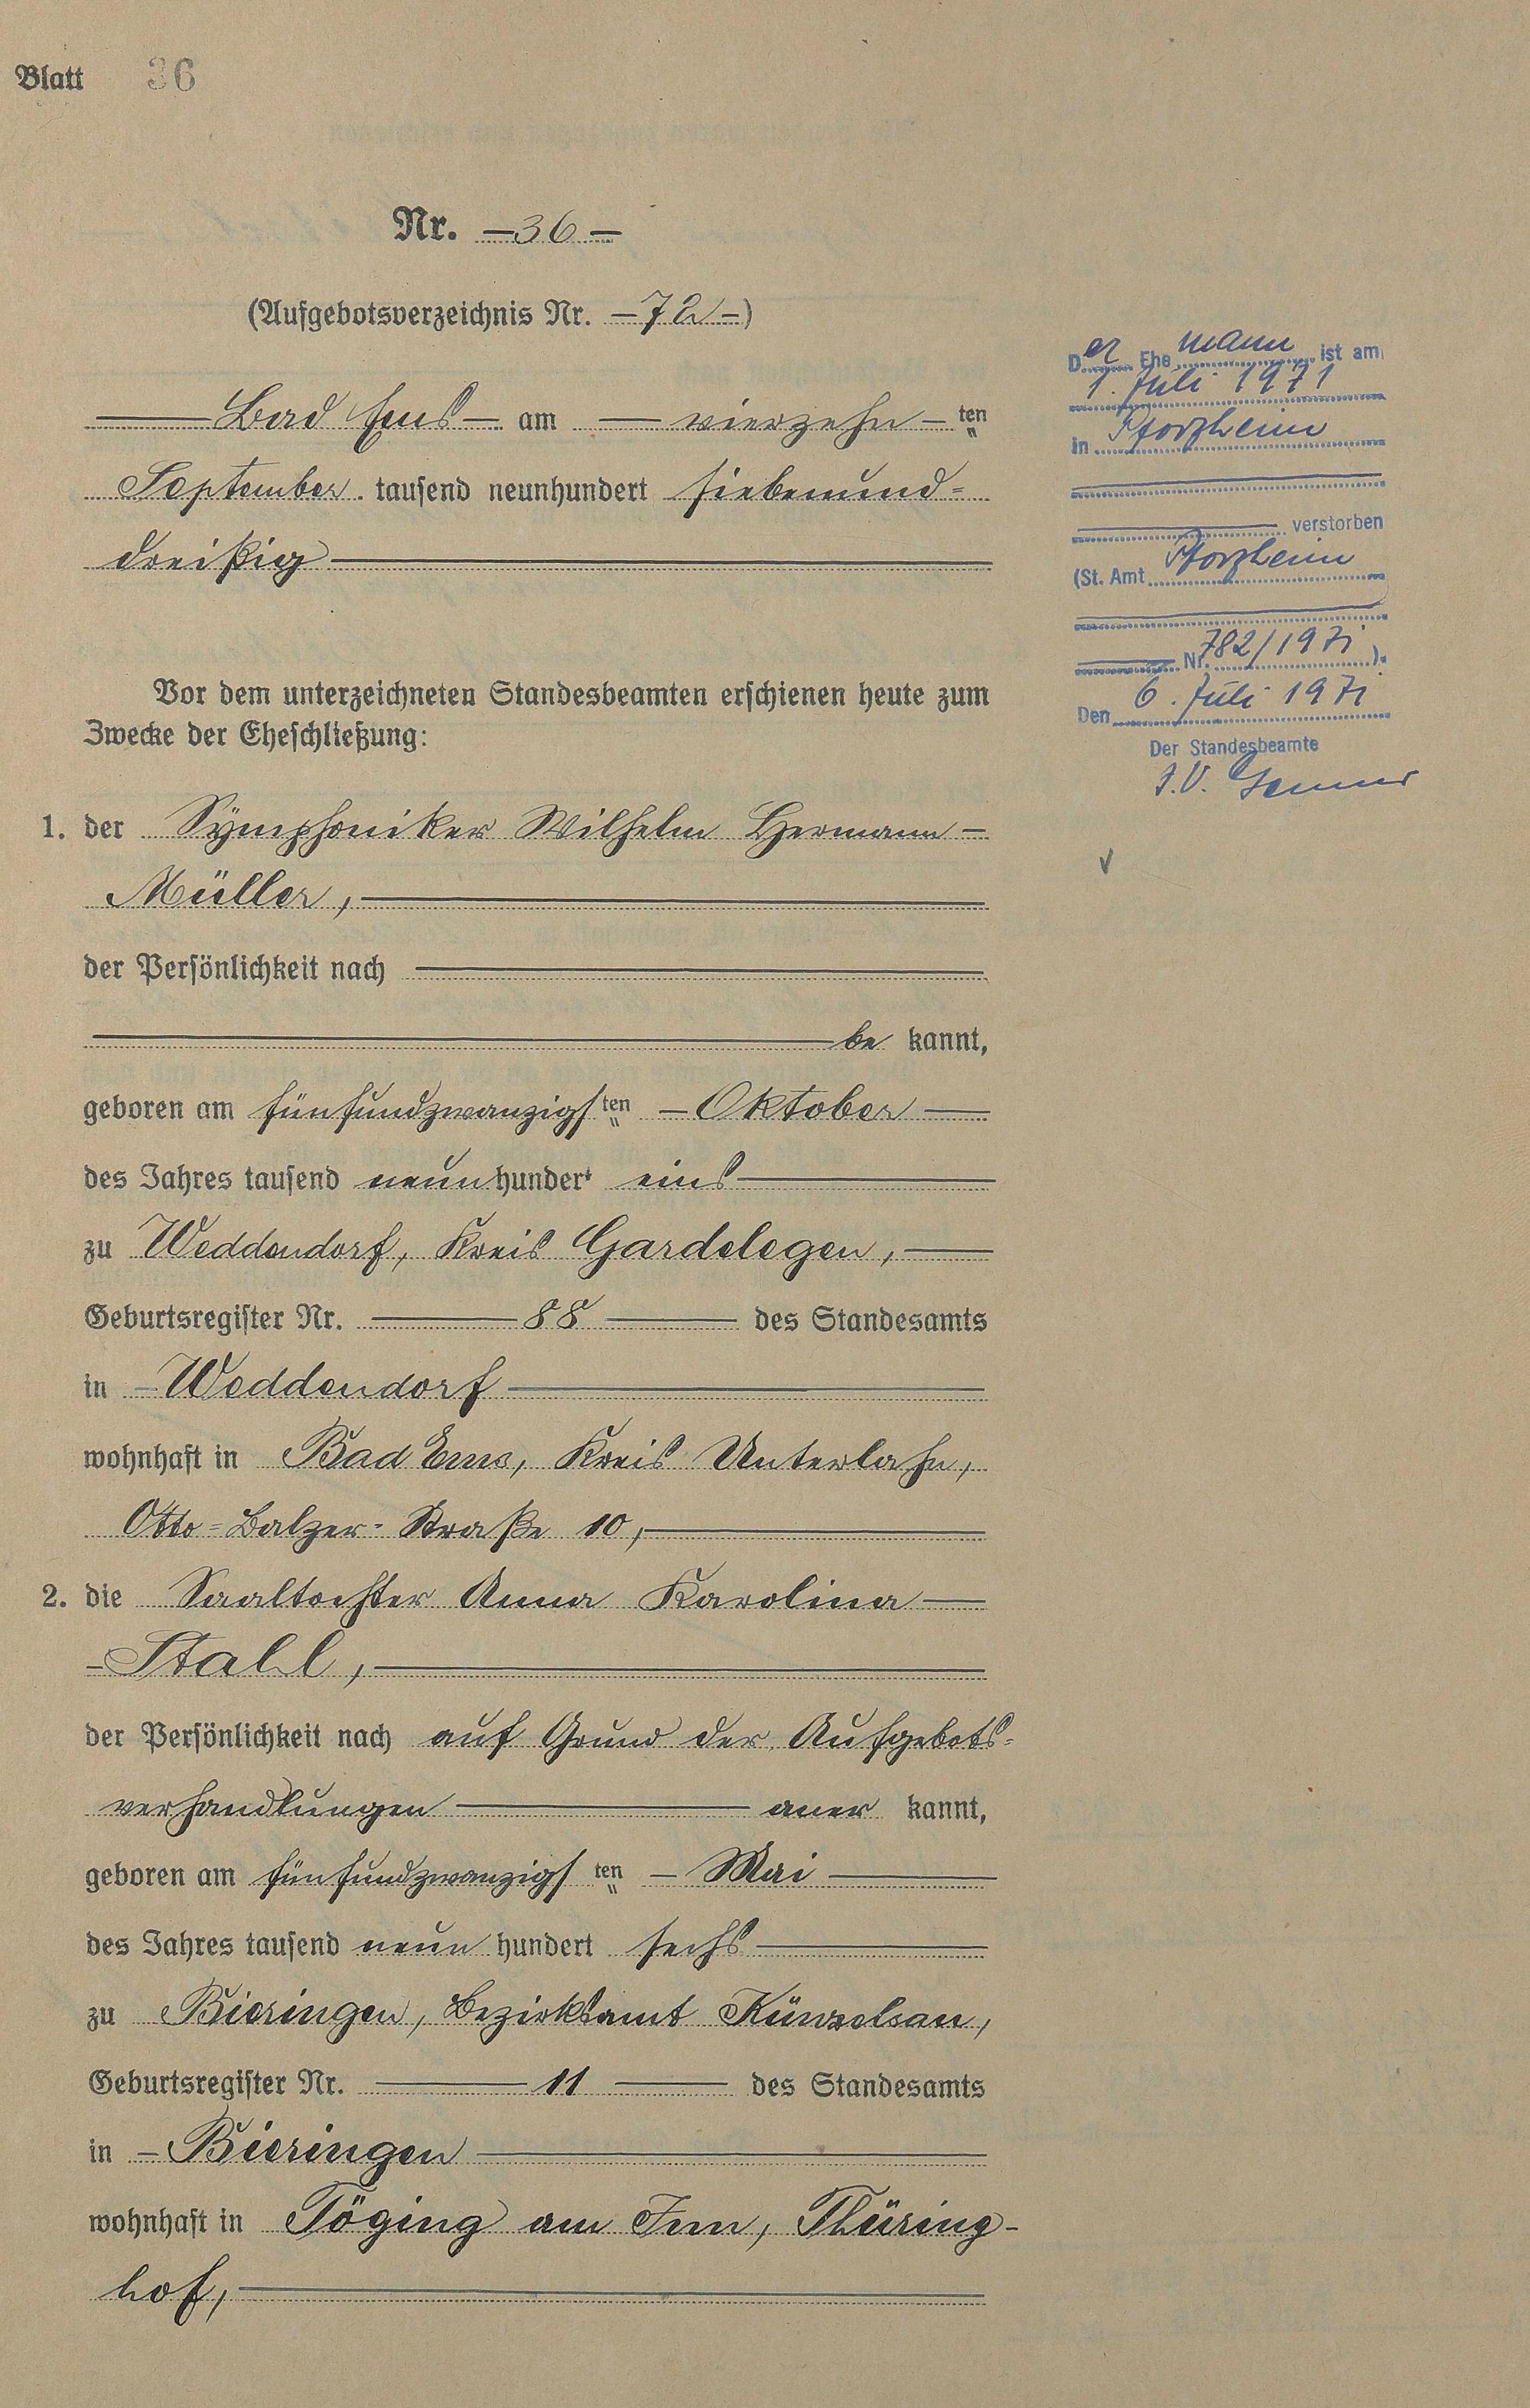 Blatt 36
Nr. — 36 —
(Aufgebotsverzeichnis Nr. — 72 —)
Bad Ems — am — vierzehn — ten
September tausend neunhundert siebenund=
dreißig
Vor dem unterzeichneten Standesbeamten erschienen heute zum
Zwecke der Eheschließung:
1. der Symphoniker Wilhelm Hermann —
Müller,
der Persönlichkeit nach
be kannt,
geboren am fünfundzwanzigs ten — Oktober —
des Jahres tausend neun hundert eins
zu Weddendorf, Kreis Gardelegen,
Geburtsregister Nr. — 88 — des Standesamts
in — Weddendorf
wohnhaft in Bad Ems, Kreis Unterlahn,
Otto=Balzer=Straße 10,
2. die Saaltochter Anna Karolina —
— Stahl,
der Persönlichkeit nach auf Grund der Aufgebots=
verhandlungen — aner kannt,
geboren am fünfundzwanzigs ten — Mai —
des Jahres tausend neun hundert sechs
zu Bieringen, Bezirksamt Künzelsau,
Geburtsregister Nr. — 11 — des Standesamts
in — Bieringen
wohnhaft in Töging am Inn, Thüring-
hof,
Der Ehemann ist am
1. Juli 1971
in Pforzheim
verstorben
(St. Amt Pforzheim
Nr. 782/1971).
Den 6. Juli 1971
Der Standesbeamte
I.V.